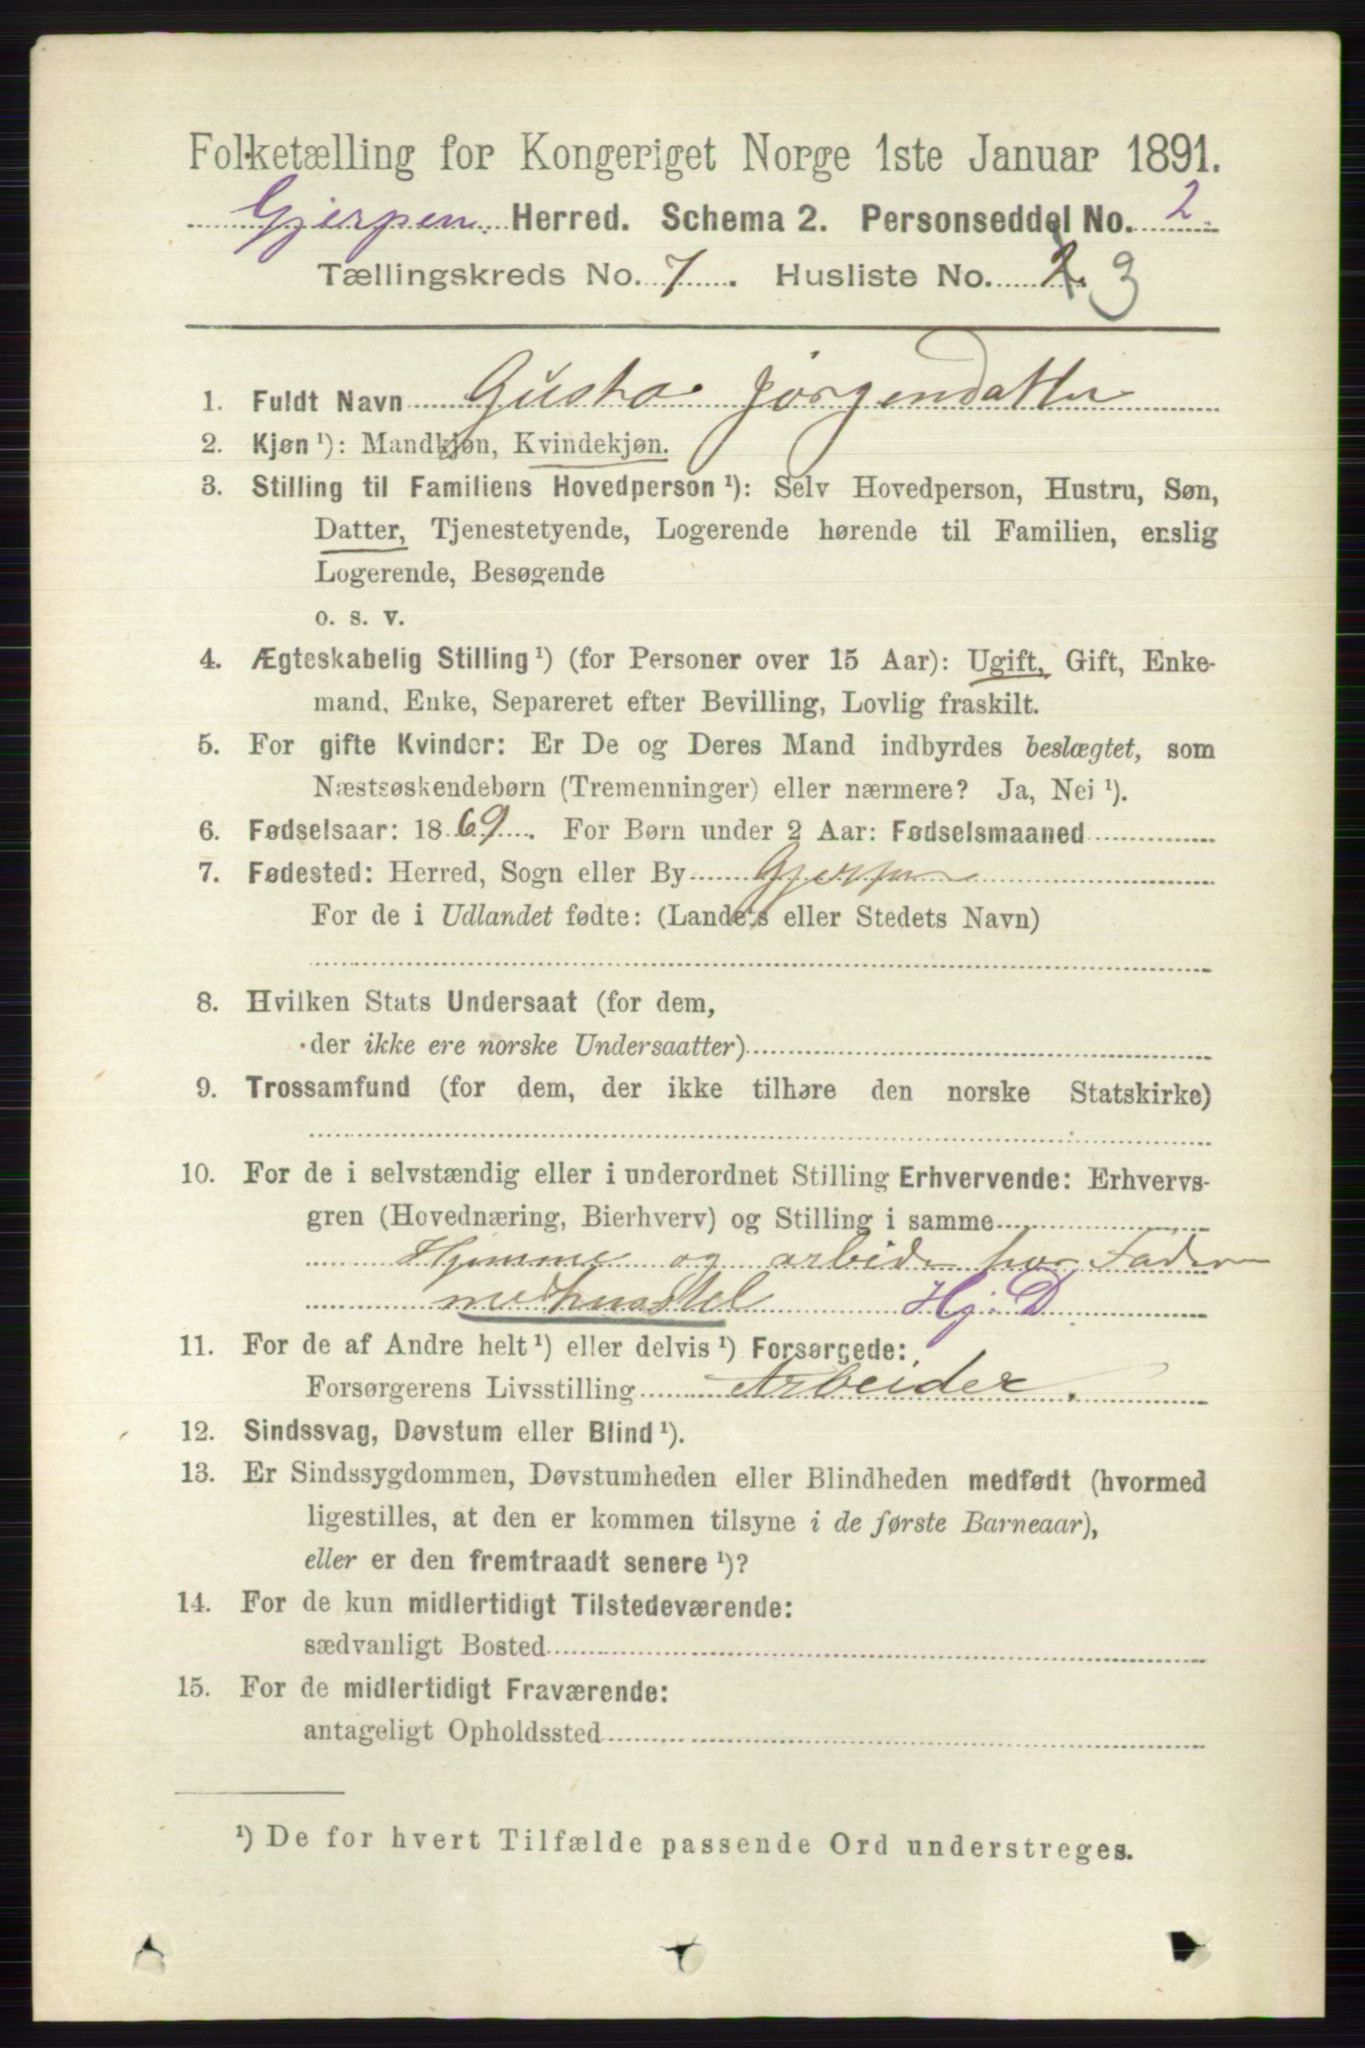 Folketælling for Kongeriget Norge 1ste Januar 1891.
Gjerpen Herred. Schema 2. Personseddel No. 2
Tællingskreds No. 7. Husliste No. 2. 3
1. Fuldt Navn Gusta Jörgendatter
2. Kjøn ¹): Mandkjøn, Kvindekjøn.
3. Stilling til Familiens Hovedperson ¹): Selv Hovedperson, Hustru, Søn,
Datter, Tjenestetyende, Logerende hørende til Familien, enslig
Logerende, Besøgende
o. s. v.
4. Ægteskabelig Stilling ¹) (for Personer over 15 Aar): Ugift, Gift, Enke-
mand, Enke, Separeret efter Bevilling, Lovlig fraskilt.
5. For gifte Kvinder: Er De og Deres Mand indbyrdes beslægtet, som
Næstsøskendebørn (Tremenninger) eller nærmere? Ja, Nei ¹).
6. Fødselsaar: 1869. For Børn under 2 Aar: Fødselsmaaned
7. Fødested: Herred, Sogn eller By Gjerpen
For de i Udlandet fødte: (Landets eller Stedets Navn)
8. Hvilken Stats Undersaat (for dem,
der ikke ere norske Undersaatter)
9. Trossamfund (for dem, der ikke tilhøre den norske Statskirke)
10. For de i selvstændig eller i underordnet Stilling Erhvervende: Erhvervs-
gren (Hovednæring, Bierhverv) og Stilling i samme
Hjemme og arbeider hos Faderen
med husstel Hj. D
11. For de af Andre helt ¹) eller delvis ¹) Forsørgede:
Forsørgerens Livsstilling Arbeider.
12. Sindssvag, Døvstum eller Blind ¹).
13. Er Sindssygdommen, Døvstumheden eller Blindheden medfødt (hvormed
ligestilles, at den er kommen tilsyne i de første Barneaar),
eller er den fremtraadt senere ¹)?
14. For de kun midlertidigt Tilstedeværende:
sædvanligt Bosted
15. For de midlertidigt Fraværende:
antageligt Opholdssted
¹) De for hvert Tilfælde passende Ord understreges.